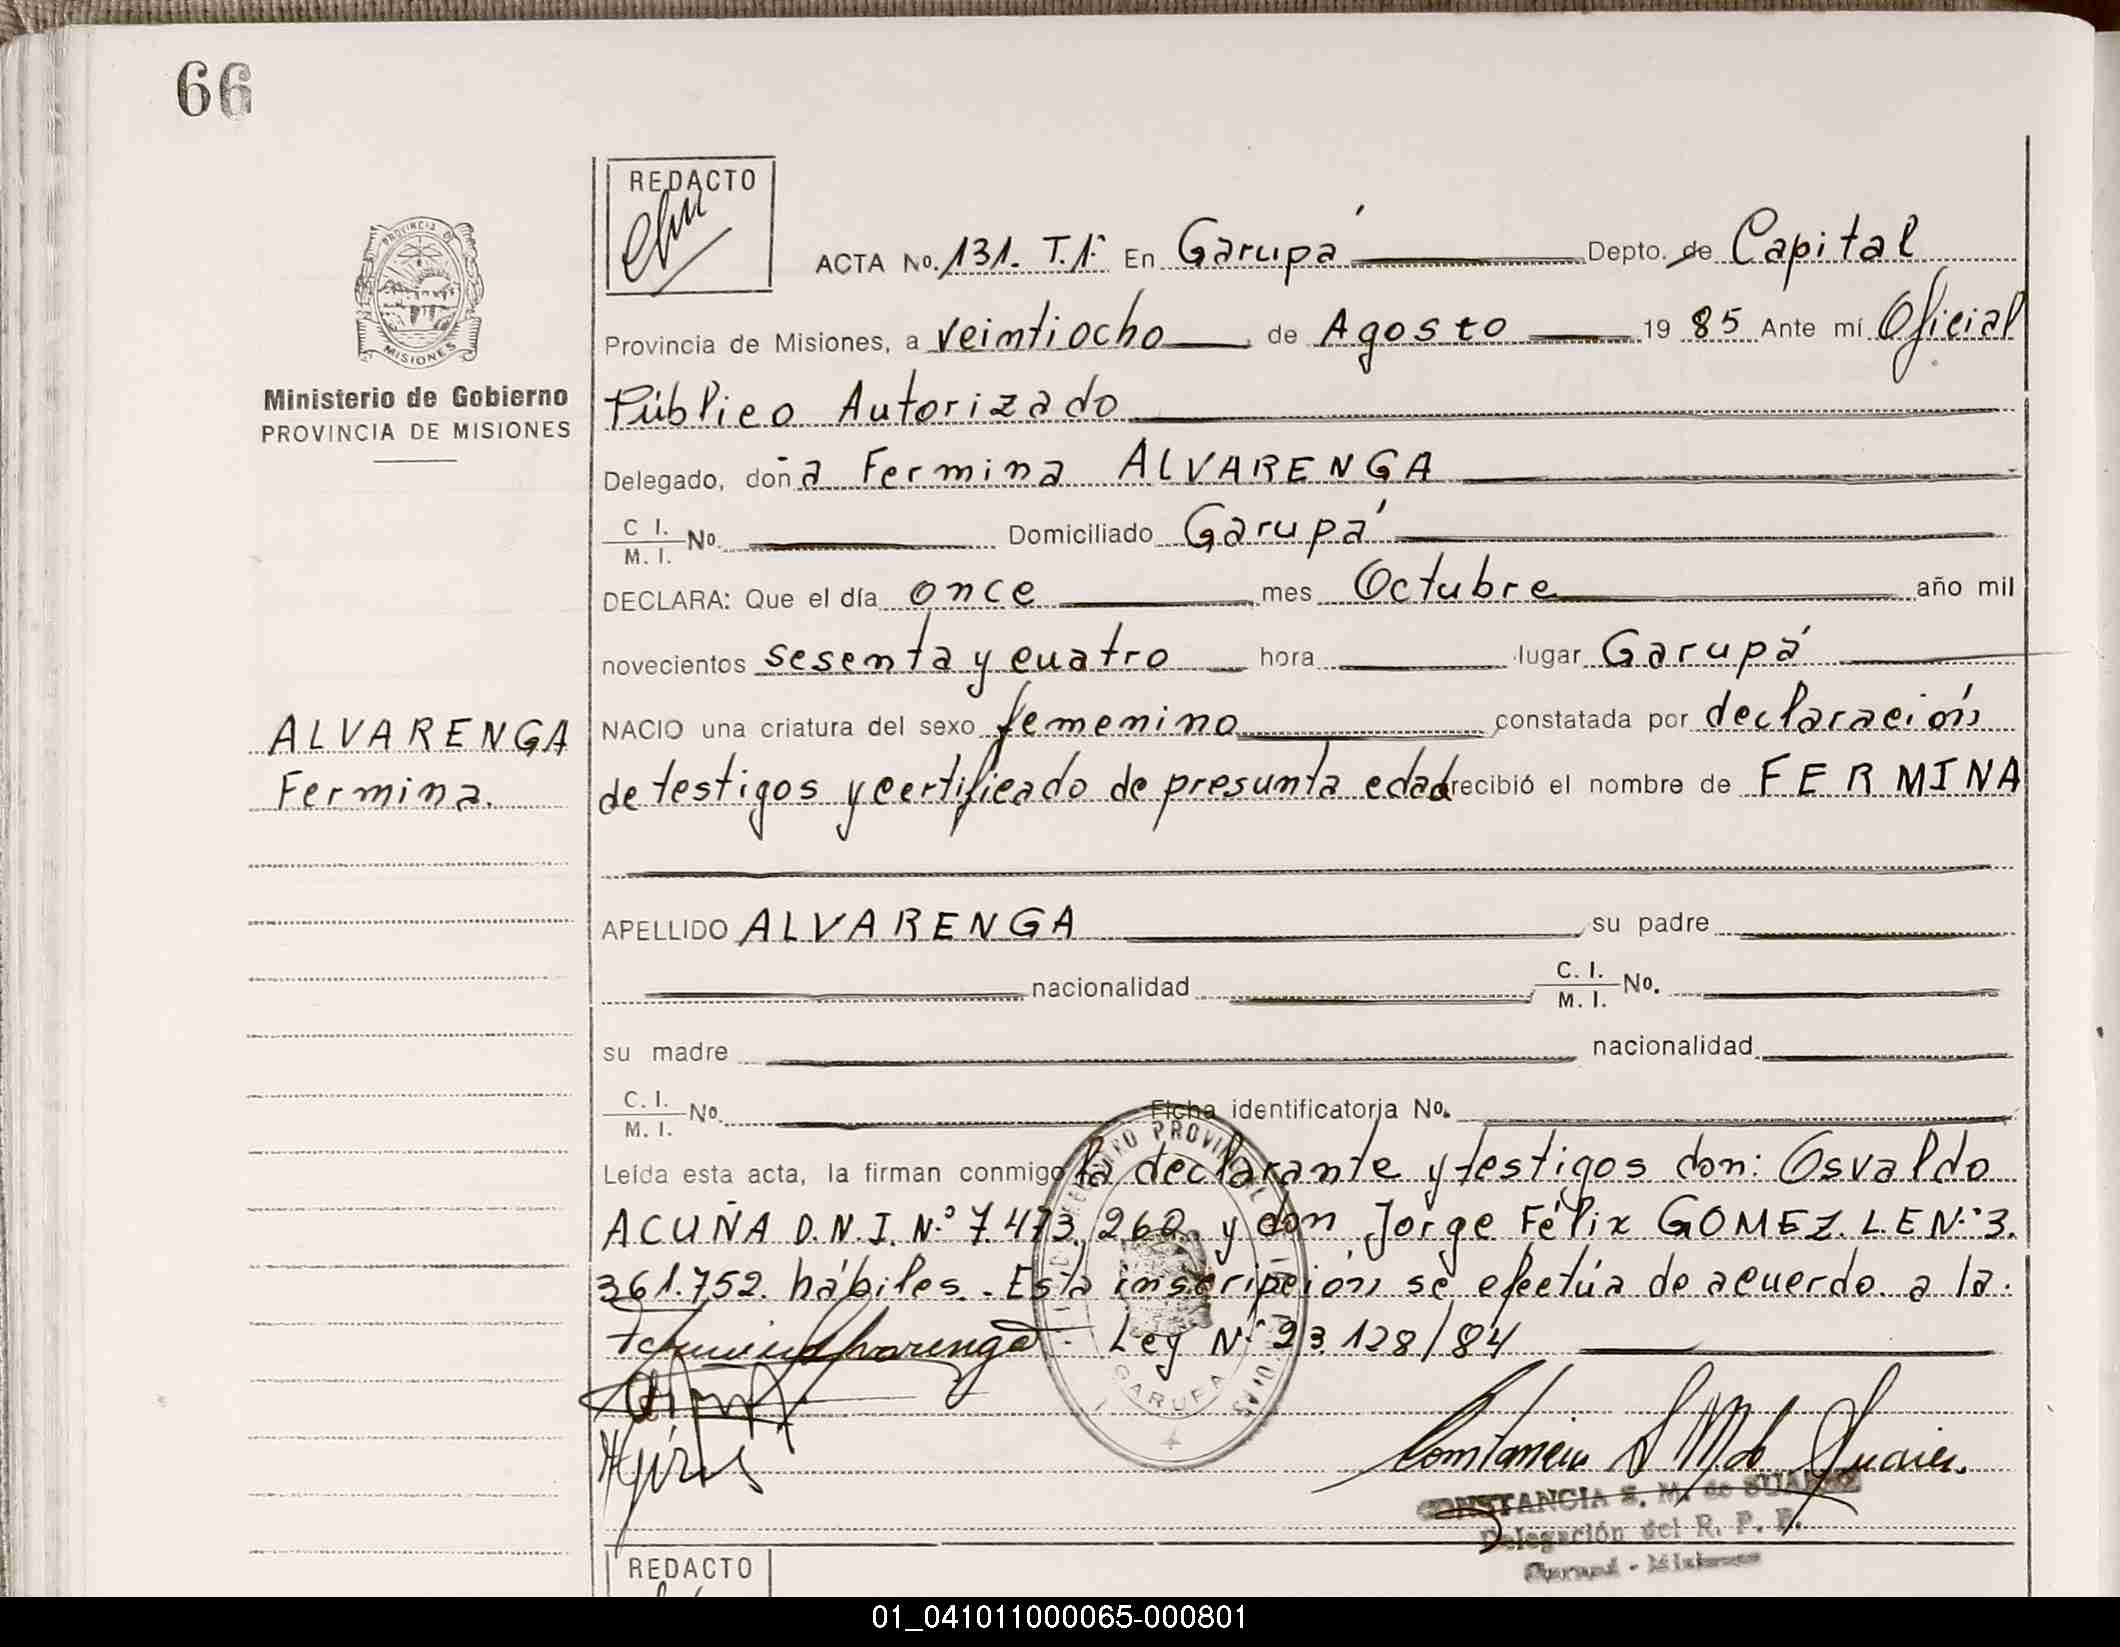 66
REDACTO
ACTA No. 131. T.1º En Garupá Depto. de Capital
Provincia de Misiones, a veintiocho de Agosto 1985 Ante mí Oficial
Público Autorizado
Delegado, doña Fermina ALVARENGA
C I. / M. I. No. Domiciliado Garupá
DECLARA: Que el día once mes Octubre año mil
novecientos sesenta y cuatro hora lugar Garupá
NACIO una criatura del sexo femenino constatada por declaración
de testigos y certificado de presunta edad recibió el nombre de FERMINA
APELLIDO ALVARENGA su padre
nacionalidad C. I. / M. I. No.
su madre nacionalidad
C. I. / M. I. No. Ficha identificatoria No.
Leída esta acta, la firman conmigo la declarante y testigos don: Osvaldo
ACUÑA D.N.I. Nº 7.473.262 y don Jorge Félix GOMEZ. L.E Nº 3.
361.752. hábiles.. Esta inscripción se efectúa de acuerdo a la
Fermina Alvarenga Ley Nº 23.128/84
PROVINCIA DE
MISIONES
Ministerio de Gobierno
PROVINCIA DE MISIONES
ALVARENGA
Fermina.
GARUPA
CONSTANCIA S. M. de SUAREZ
Delegación del R. P. P.
Garupá - Misiones
REDACTO
01_041011000065-000801